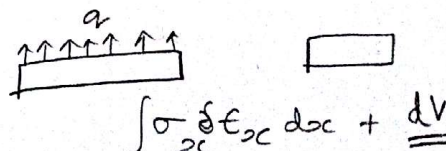 q
∫σₓ δεₓ dx + dV